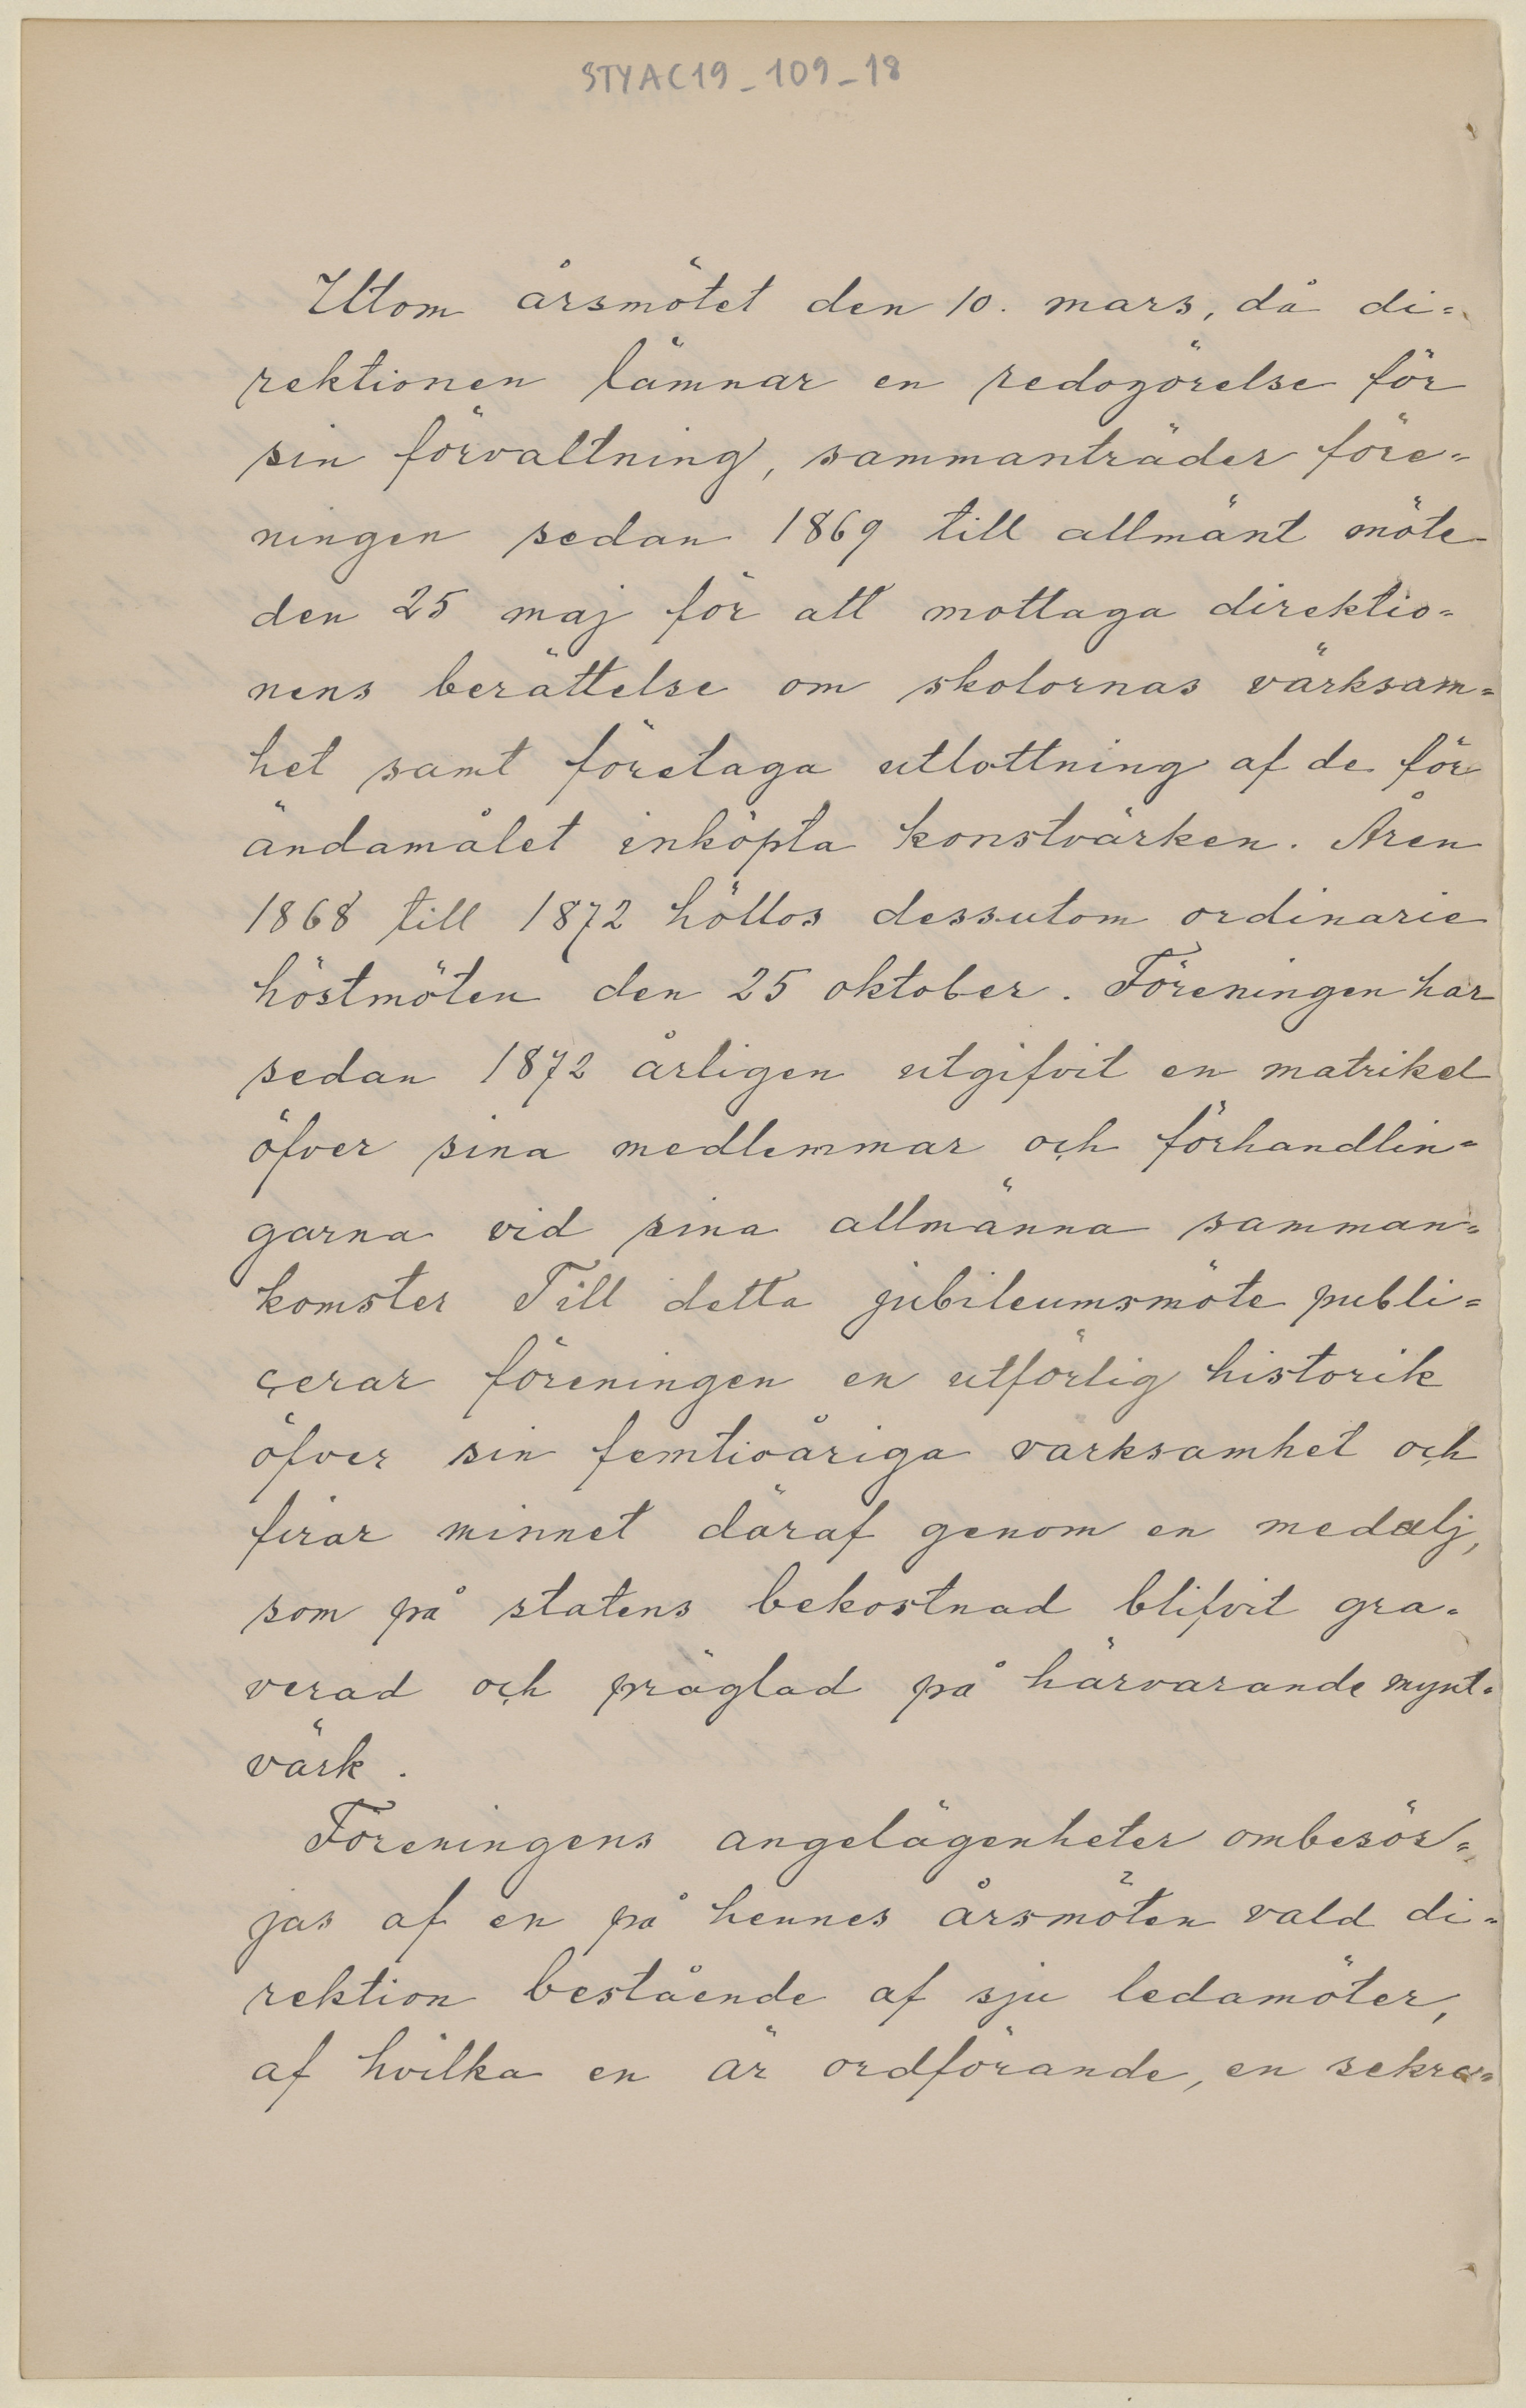 STYAC19_109_18
Utom årsmötet den 10. mars, då di=
rektionen lämnar en redogörelse för
sin förvaltning, sammanträder före=
ningen sedan 1869 till allmänt möte
den 25 maj för att mottaga direktio=
nens berättelse om skolornas värksam=
het samt företaga utlottning af de för
ändamålet inköpta konstvärken. Åren
1868 till 1872 höllos dessutom ordinarie
höstmöten den 25 oktober. Föreningen har
sedan 1872 årligen utgifvit en matrikel
öfver sina medlemmar och förhandlin=
garna vid sina allmänna samman=
komster Till detta jubileumsmöte publi=
çerar föreningen en utförlig historik
öfver sin femtioåriga värksamhet och
firar minnet däraf genom en medalj,
som på statens bekostnad blifvit gra=
verad och präglad på härvarande mynt=
värk.
Föreningens angelägenheter ombesör=
jas af en på hennes årsmöten vald di=
rektion bestående af sju ledamöter,
af hvilka en är ordförande, en sekre=